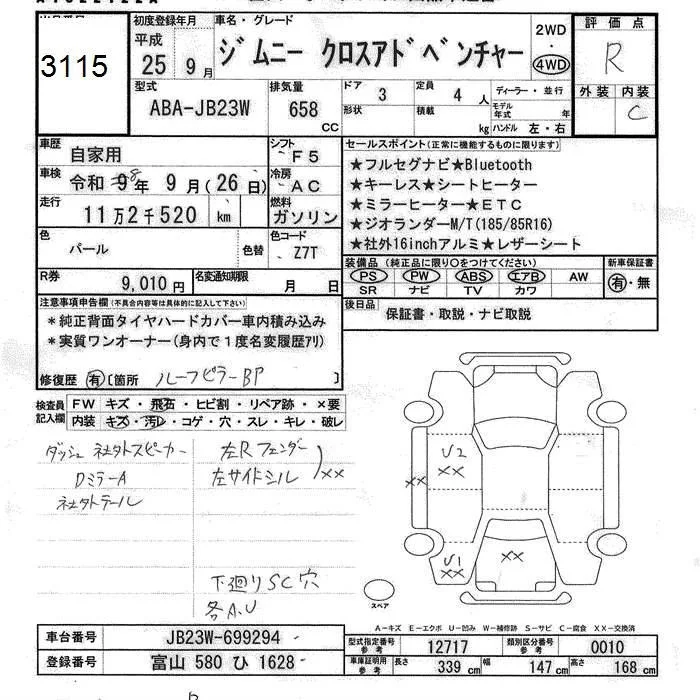 3115
初度登録年月
平成
25 9月
車名・グレード
ジムニー クロスアドベンチャー
2WD
・
4WD
評価点
R
外装 内装
C
型式
ABA-JB23W
排気量
658
cc
ドア
3
定員
4 人
形状
積載
kg
ディーラー・並行
モデル
年式 年
ハンドル 左・右
車歴
自家用
シフト
F5
車検
令和 8年 9月(26日)
冷房
AC
走行
11万2千520 km
燃料
ガソリン
色
パール
色替
色コード
Z7T
R券
9,010円
名変通知期限
月 日
セールスポイント(正常に機能するものに限ります)
★フルセグナビ★Bluetooth
★キーレス★シートヒーター
★ミラーヒーター★ETC
★ジオランダーM/T(185/85R16)
★社外16inchアルミ★レザーシート
装備品(純正品に限り○をつけてください)
PS PW ABS エアB AW
SR ナビ TV カワ
新車保証書
有・無
後日品
保証書・取説・ナビ取説
注意事項申告欄(不具合内容等は具体的に記入して下さい)
*純正背面タイヤハードカバー車内積み込み
*実質ワンオーナー(身内で1度名変履歴アリ)
修復歴 有 [箇所 ルーフピラーBP ]
検査員
記入欄
FW キズ・飛石・ヒビ割・リペア跡・×要
内装 キズ・汚レ・コゲ・穴・スレ・キレ・破レ
ダッシュ 社外スピーカー
DミラーA
社外テール
左Rフェンダー
左サイドシル
××
下廻りSC穴
各A.U
U2
××
××
U1
××
××
スペア
A－キズ E－エクボ U－凹み W－補修跡 S－サビ C－腐食 XX－交換済
車台番号
JB23W-699294
登録番号
富山 580 ひ 1628
型式指定番号
参考
12717
類別区分番号
参考
0010
車庫証明用
参考
長さ
339 cm
幅
147 cm
高さ
168 cm